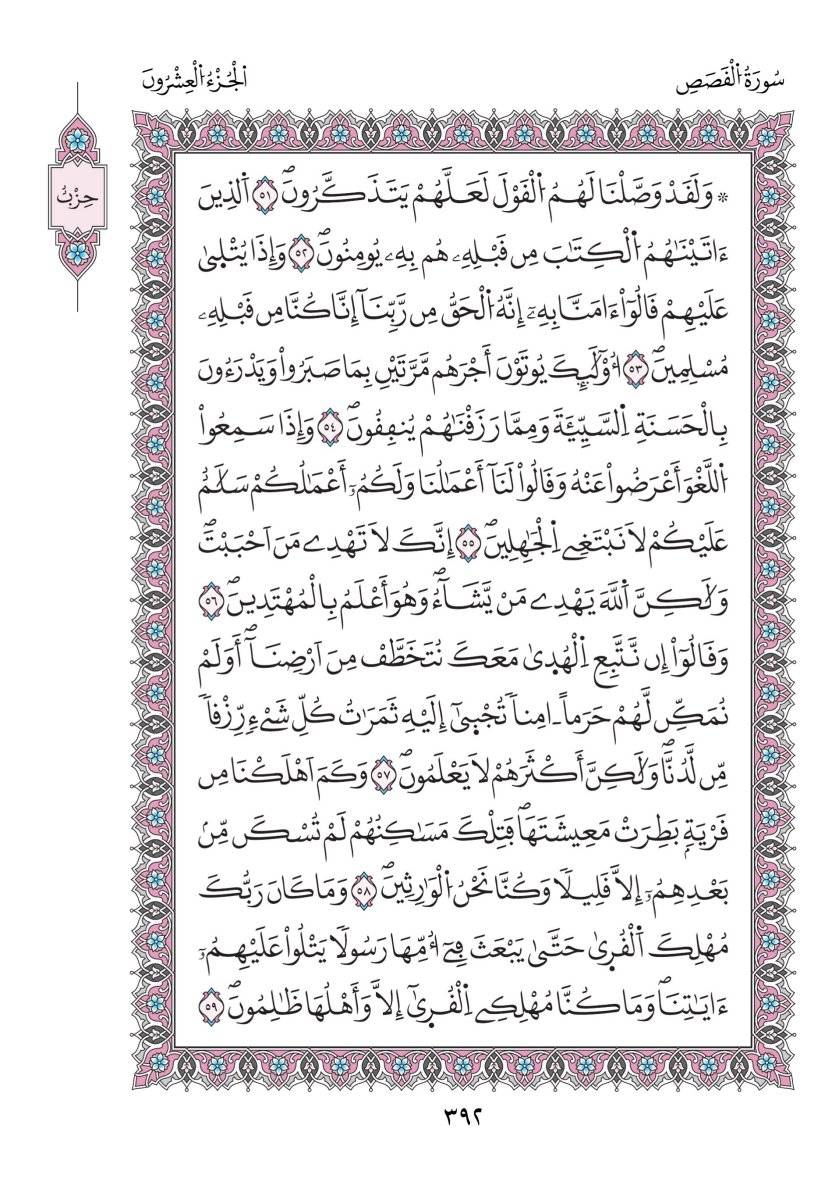 سُورَةُ اُ۬لْقَصَصِ
اَ۬لْجُزْءُ اُ۬لْعِشْرُونَ
حِزْبٌ
۞ وَلَقَدْ وَصَّلْنَا لَهُمُ اُ۬لْقَوْلَ لَعَلَّهُمْ يَتَذَكَّرُونَۖ ٥١ اَ۬لذِينَ
ءَاتَيْنَٰهُمُ اُ۬لْكِتَٰبَ مِن قَبْلِهِۦ هُم بِهِۦ يُومِنُونَۖ ٥٢ وَإِذَا يُتْل۪يٰ
عَلَيْهِمْ قَالُوٓاْ ءَامَنَّا بِهِۦٓ إِنَّهُ اُ۬لْحَقُّ مِن رَّبِّنَآ إِنَّا كُنَّا مِن قَبْلِهِۦ
مُسْلِمِينَۖ ٥٣ أُوْلَٰٓئِكَ يُوتَوْنَ أَجْرَهُم مَّرَّتَيْنِ بِمَا صَبَرُواْ وَيَدْرَءُونَ
بِالْحَسَنَةِ اِ۬لسَّيِّئَةَ وَمِمَّا رَزَقْنَٰهُمْ يُنفِقُونَۖ ٥٤ وَإِذَا سَمِعُواْ
اُ۬للَّغْوَ أَعْرَضُواْ عَنْهُ وَقَالُواْ لَنَآ أَعْمَٰلُنَا وَلَكُمُۥٓ أَعْمَٰلُكُمْ سَلَٰمٌ
عَلَيْكُمْ لَا نَبْتَغِے اِ۬لْجَٰهِلِينَۖ ٥٥ إِنَّكَ لَا تَهْدِے مَنَ اَحْبَبْتَۖ
وَلَٰكِنَّ اَ۬للَّهَ يَهْدِے مَنْ يَّشَآءُۖ وَهُوَ أَعْلَمُ بِالْمُهْتَدِينَۖ ٥٦
وَقَالُوٓاْ إِن نَّتَّبِعِ اِ۬لْهُد۪يٰ مَعَكَ نُتَخَطَّفْ مِنَ اَرْضِنَآۖ أَوَلَمْ
نُمَكِّن لَّهُمْ حَرَماً اٰمِناٗ تُجْب۪يٰٓ إِلَيْهِ ثَمَرَٰتُ كُلِّ شَےْءٖ رِّزْقاٗ
مِّن لَّدُنَّاۖ وَلَٰكِنَّ أَكْثَرَهُمْ لَا يَعْلَمُونَۖ ٥٧ وَكَمَ اَهْلَكْنَا مِن
قَرْيَةِۢ بَطِرَتْ مَعِيشَتَهَاۖ فَتِلْكَ مَسَٰكِنُهُمْ لَمْ تُسْكَن مِّنۢ
بَعْدِهِمُۥٓ إِلَّا قَلِيلاٗ وَكُنَّا نَحْنُ اُ۬لْوَٰرِثِينَۖ ٥٨ وَمَا كَانَ رَبُّكَ
مُهْلِكَ اَ۬لْقُر۪يٰ حَتَّىٰ يَبْعَثَ فِےٓ أُمِّهَا رَسُولاٗ يَتْلُواْ عَلَيْهِمُۥٓ
ءَايَٰتِنَاۖ وَمَا كُنَّا مُهْلِكِے اِ۬لْقُر۪يٰٓ إِلَّا وَأَهْلُهَا ظَٰلِمُونَۖ ٥٩
٣٩٢